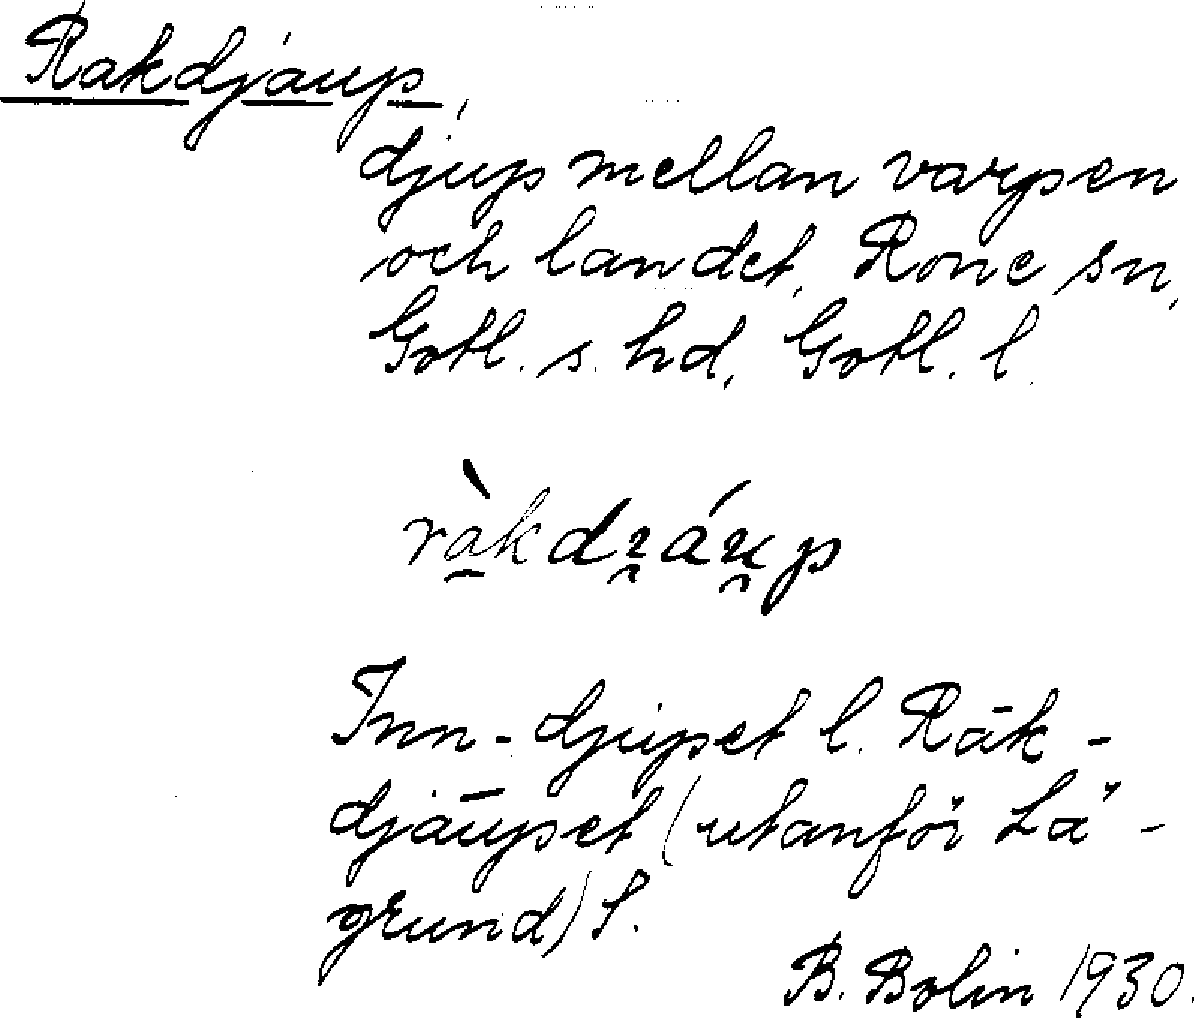 Rakdjaup,
djup mellan varpen
och landet, Rone sn,
Gotl. s. hd, Gotl. l.
Inn-djupset l. Rāk-
djāupset (utanför Lä-
grund) S.
B. Bolin 1930.